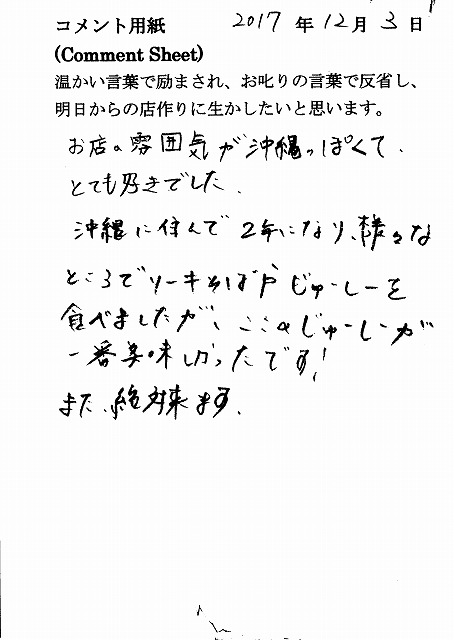 コメント用紙 2017 年 12 月 3 日
(Comment Sheet)
温かい言葉で励まされ、お叱りの言葉で反省し、
明日からの店作りに生かしたいと思います。
お店の雰囲気が沖縄っぽくて、
とても好きでした。
沖縄に住んで2年になり、様々な
ところでソーキそばやじゅーしーを
食べましたが、ここのじゅーしーが
一番美味しかったです!
また、絶対来ます。